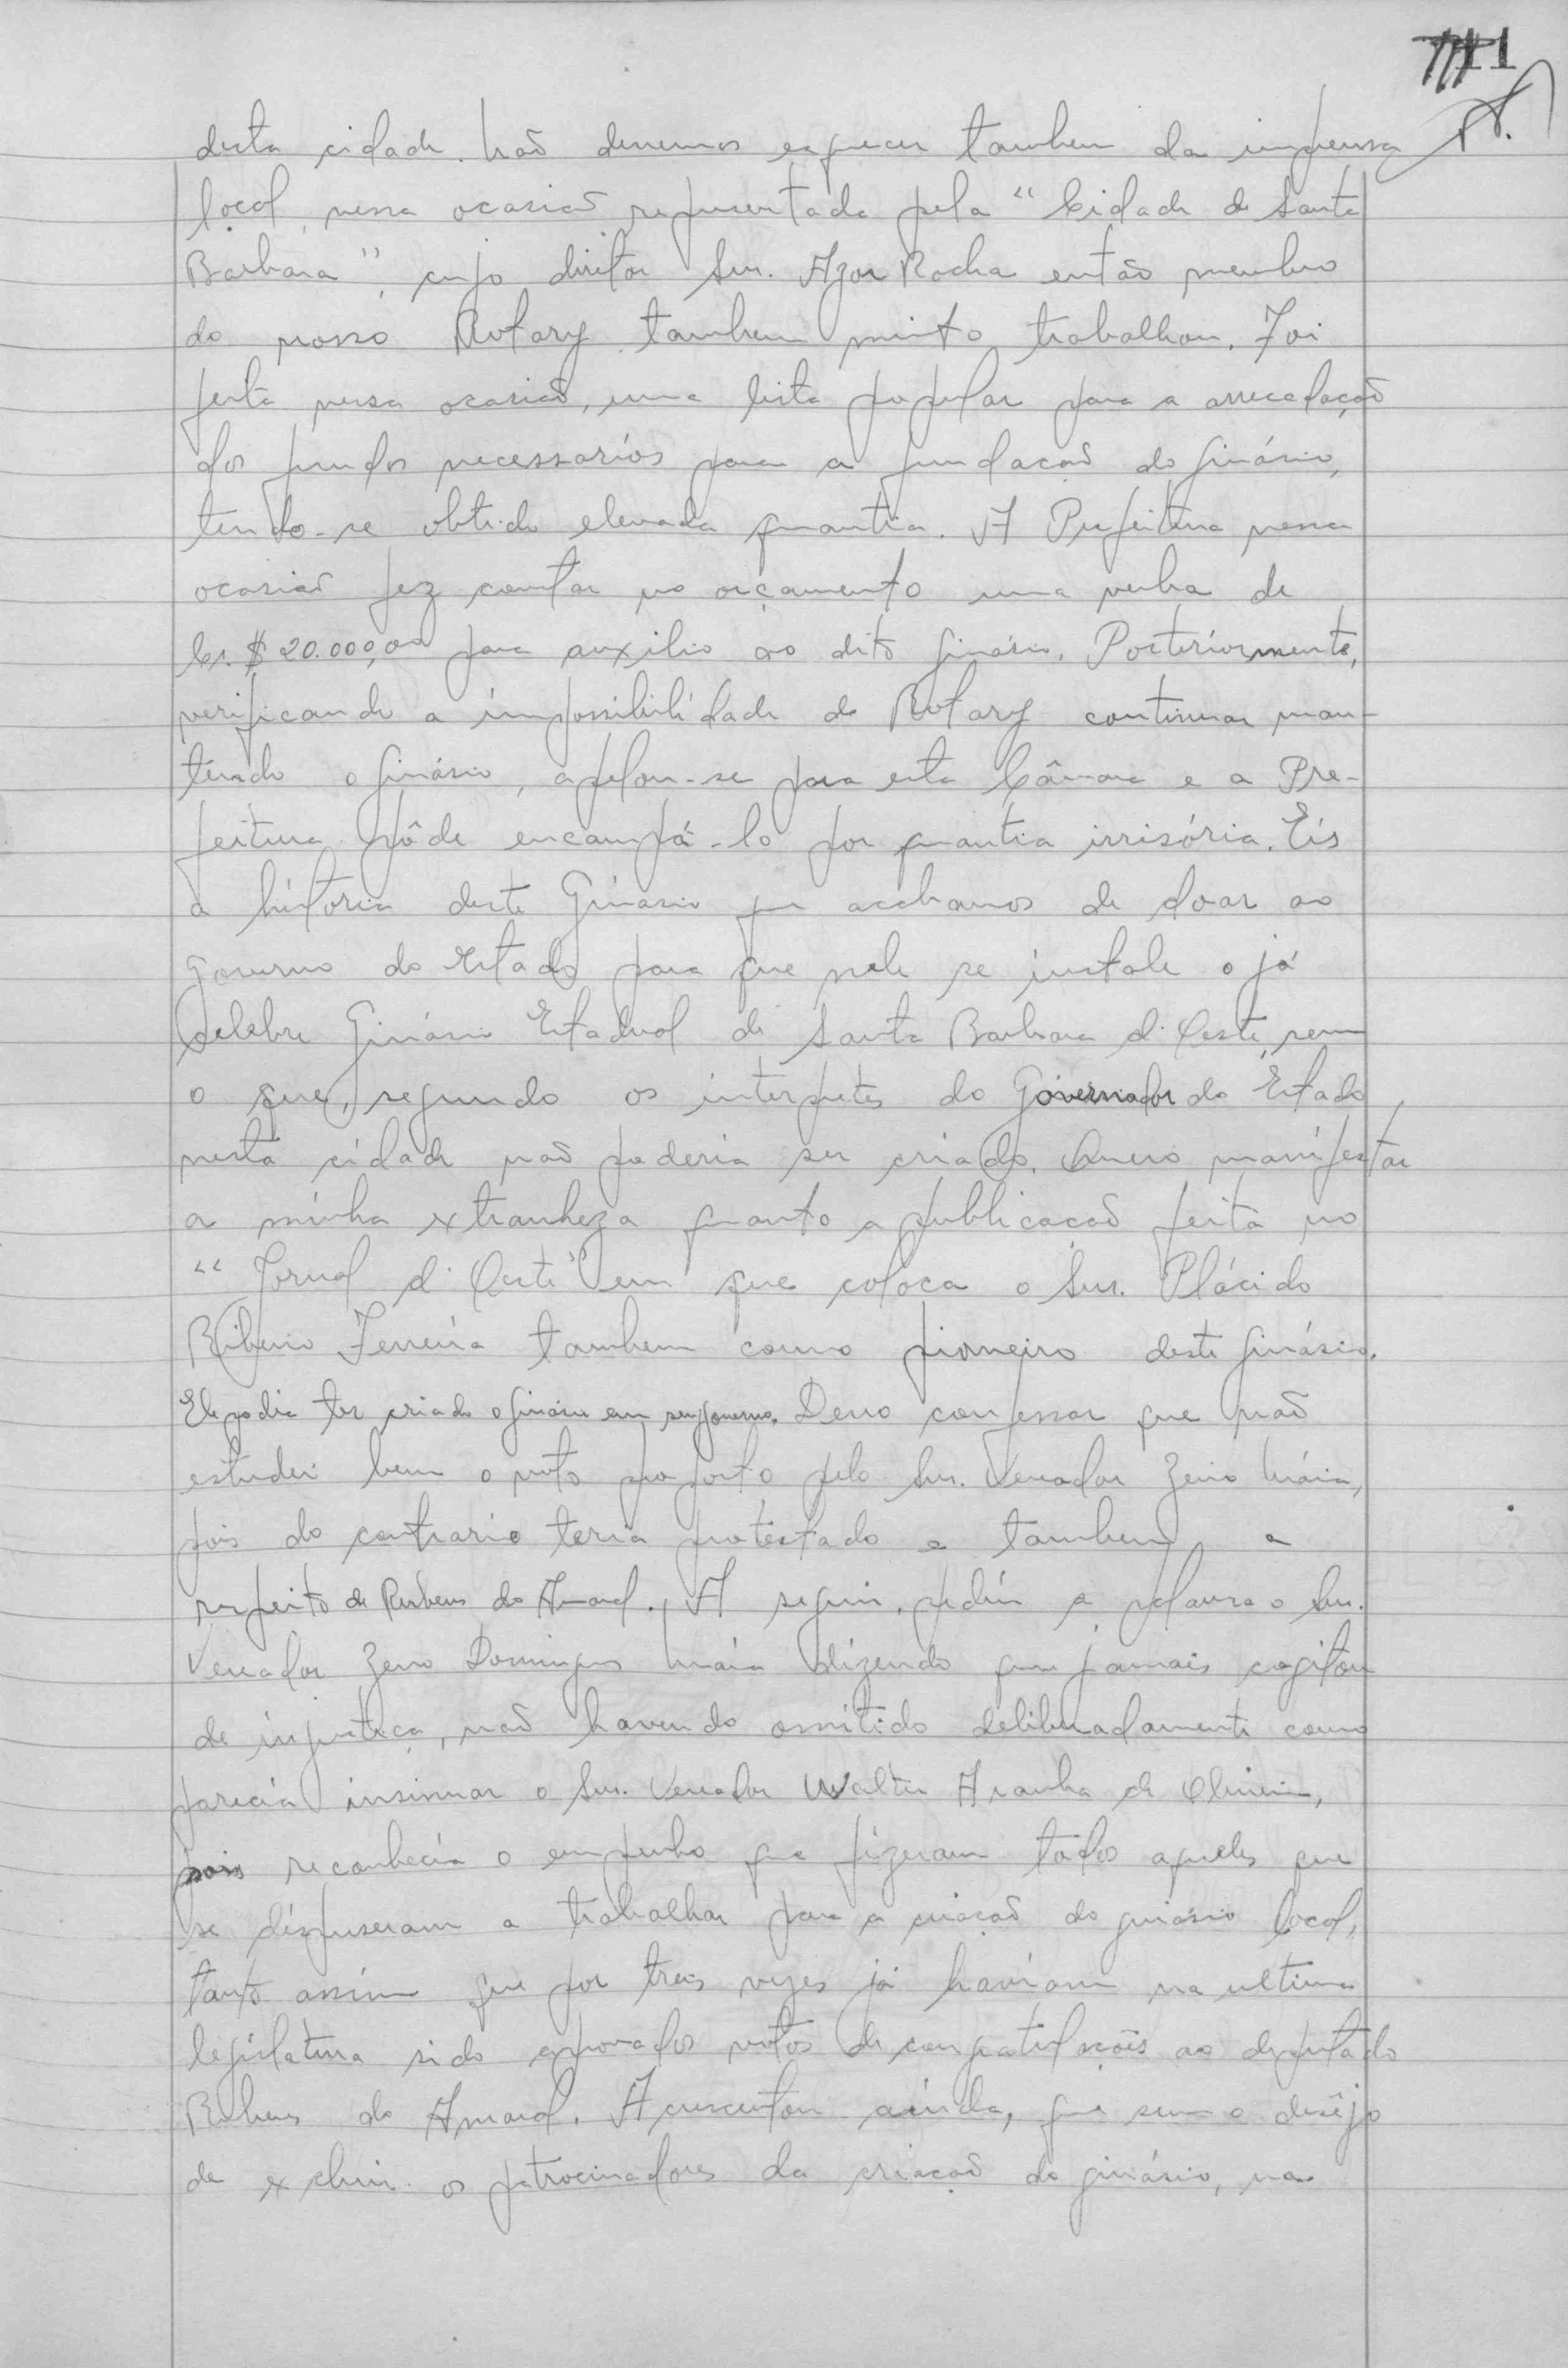 11
desta cidade. Não devemos esquecer tambem da imprensa
local, nessa ocasião representada pela "Cidade de Santa
Barbara", cujo diretor Snr. Azor Rocha então membro
do nosso Rotary tambem muito trabalhou. Foi
feita nessa ocasião, uma lista popular para a arrecadação
dos fundos necessarios para a fundação do ginásio,
tendo-se obtido elevada quantia. A Prefeitura nessa
ocasião fez constar no orçamento uma verba de
Cr.$ 20.000,00 para auxilio ao dito ginásio. Posteriormente,
verificando a impossibilidade do Rotary continuar man-
tendo o ginásio, apelou-se para esta Câmara e a Pre-
feitura pôde encampá-lo por quantia irrisória. Eis
a história deste Ginasio que acabamos de doar ao
Governo do Estado para que nele se instale o já
celebre Ginásio Estadual de Santa Barbara d'Oeste, sem
o que, segundo os interpretes do Governador do Estado,
nesta cidade não poderia ser criado. Quero manifestar
a minha extranheza quanto a publicação feita no
"Jornal d'Oeste" em que coloca o Snr. Plácido
Ribeiro Ferreira tambem como pioneiro deste ginásio.
Ele podia ter criado o ginásio em seu governo. Devo confessar que não
estudei bem o voto proposto pelo Snr. Vereador Zeno Maia,
pois do contrario teria protestado e tambem a
respeito de Rubens do Amaral. A seguir, pediu a palavra o Snr.
Vereador Zeno Domingues Maia dizendo que jamais cogitou
de injustiça, não havendo omitido deliberadamente como
parecia insinuar o Snr. Vereador Walter Aranha de Oliveira,
pois reconhecia o empenho que fizeram todos aqueles que
se dispuseram a trabalhar para a criação do ginásio local,
tanto assim que por tres vezes já haviam na ultima
legislatura sido aprovados votos de congratulações ao deputado
Rubens do Amaral. Acrescentou ainda, que sem o desêjo
de excluir os patrocinadores da criação do ginásio, na